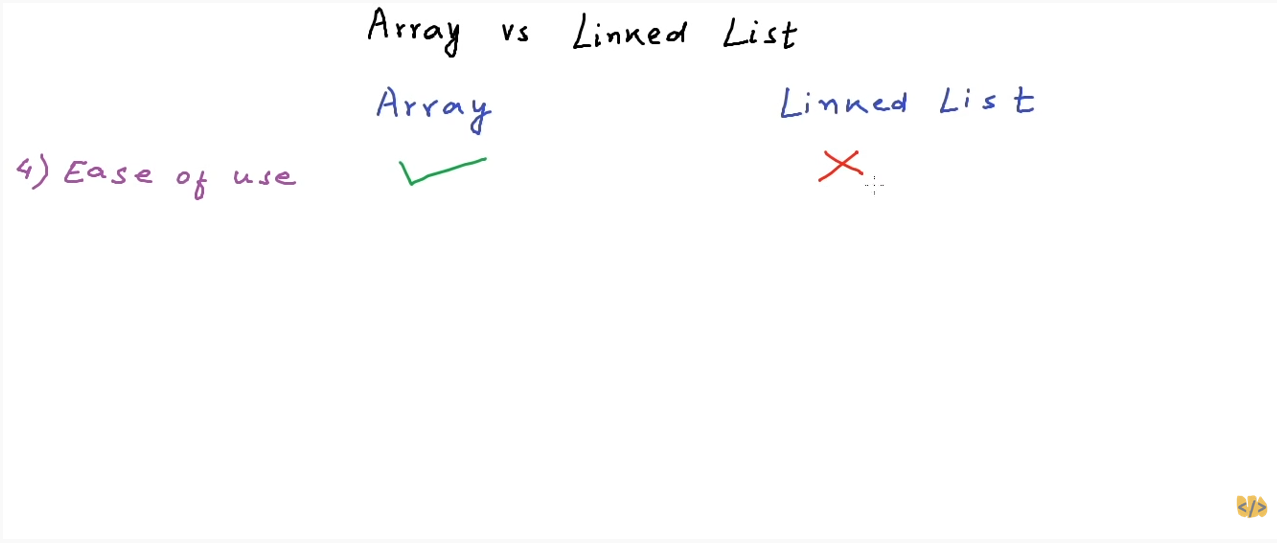 Array vs Linked List
Array Linked List
4) Ease of use